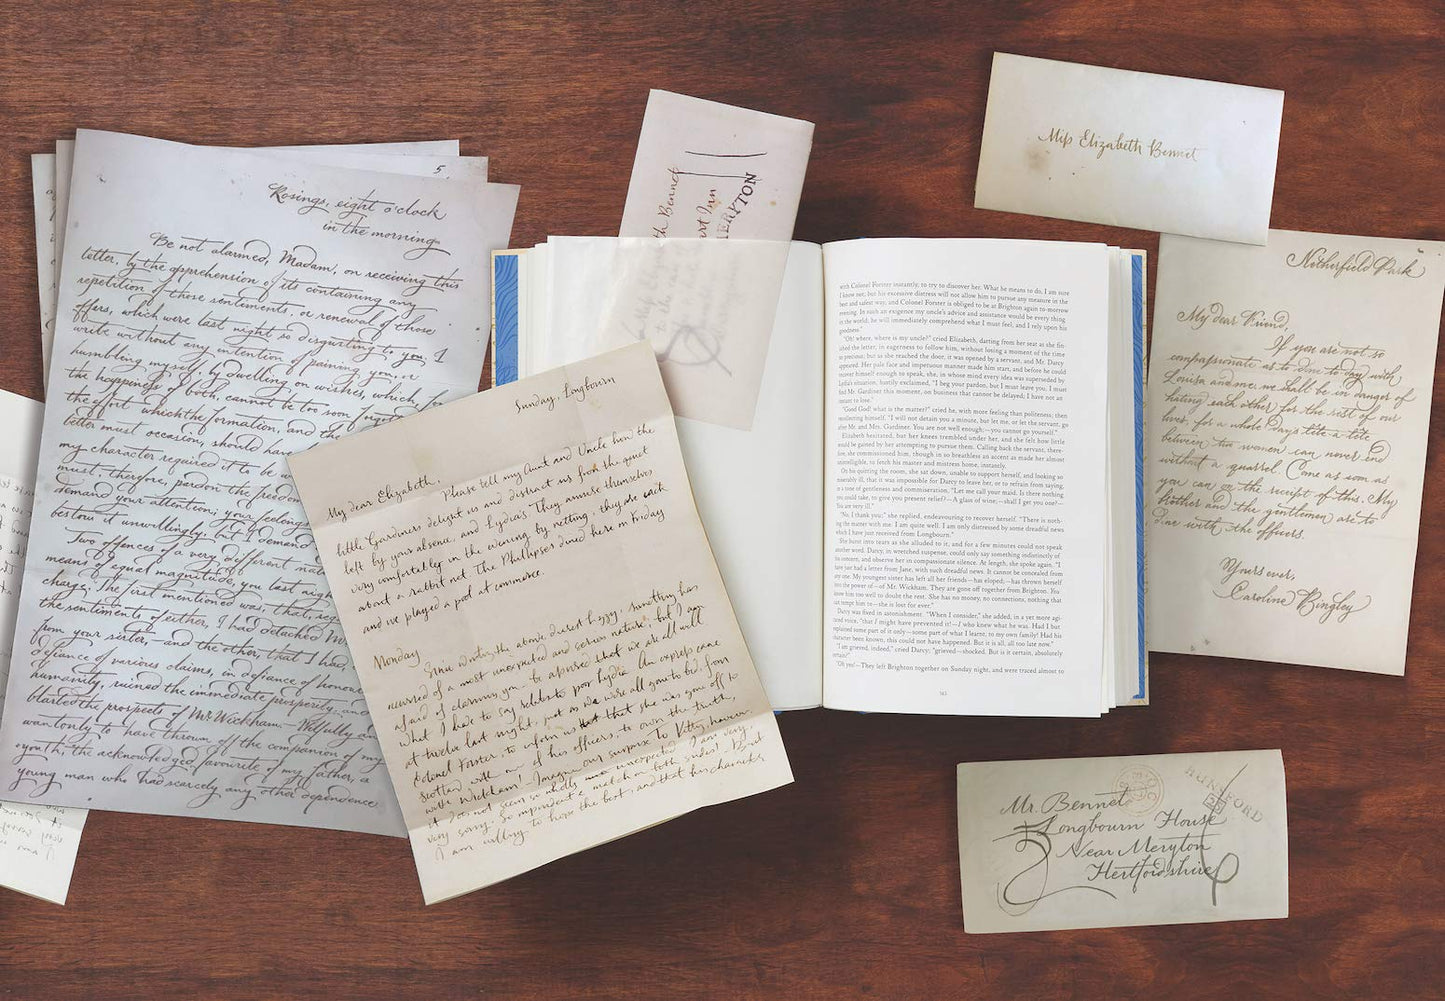 5
Rosings, eight o'clock
in the morning
Be not alarmed, Madam, on receiving this
letter, by the apprehension of its containing any
repetition of those sentiments, or renewal of those
offers, which were last night so disgusting to you. I
write without any intention of paining you, or
humbling myself, by dwelling on wishes, which, for
the happiness of both, cannot be too soon forgot
the effort which the formation, and the
letter must occasion, should have
my character required it to be w
must, therefore, pardon the freedom
demand your attention; your feelings
bestow it unwillingly, but I demand
Two offences of a very different nat
means of equal magnitude, you last nigh
charge. The first mentioned was, that, reg
the sentiments of either, I had detached M
from your sister, — and the other, that I had,
defiance of various claims, in defiance of honour
humanity, ruined the immediate prosperity, and
blasted the prospects of Mr. Wickham. — Wilfully an
wantonly to have thrown off the companion of my
youth, the acknowledged favourite of my father, a
young man who had scarcely any other dependence
Sunday, Longbourn
My dear Elizabeth,
Please tell my Aunt and Uncle how the
little Gardiners delight us and distract us from the quiet
left by your absence, and Lydia's. They amuse themselves
very comfortably in the evening by netting; they are each
about a rabbit net. The Phillipses dined here on Friday
and we played a pool at commerce.
Monday
Since writing the above, dearest Lizzy, something has
occurred of a most unexpected and serious nature; but I am
afraid of alarming you — be assured that we are all well.
What I have to say relates to poor Lydia. An express came
at twelve last night, just as we were all gone to bed, from
Colonel Forster, to inform us that she was gone off to
Scotland with one of his officers; to own the truth,
with Wickham! Imagine our surprise. To Kitty, however,
it does not seem so wholly unexpected. I am very,
very sorry. So imprudent a match on both sides! But
I am willing to hope the best, and that his character
th Bennet
art Inn
MERYTON
with Colonel Forster instantly, to try to discover her. What he means to do, I am sure
I know not; but his excessive distress will not allow him to pursue any measure in the
best and safest way, and Colonel Forster is obliged to be at Brighton again to-morrow
evening. In such an exigence my uncle's advice and assistance would be every thing
in the world; he will immediately comprehend what I must feel, and I rely upon his
goodness."
"Oh! where, where is my uncle?" cried Elizabeth, darting from her seat as she fin-
ished the letter, in eagerness to follow him, without losing a moment of the time
so precious; but as she reached the door, it was opened by a servant, and Mr. Darcy
appeared. Her pale face and impetuous manner made him start, and before he could
recover himself enough to speak, she, in whose mind every idea was superseded by
Lydia's situation, hastily exclaimed, "I beg your pardon, but I must leave you. I must
find Mr. Gardiner this moment, on business that cannot be delayed; I have not an
instant to lose."
"Good God! what is the matter?" cried he, with more feeling than politeness; then
recollecting himself, "I will not detain you a minute, but let me, or let the servant, go
after Mr. and Mrs. Gardiner. You are not well enough;—you cannot go yourself."
Elizabeth hesitated, but her knees trembled under her, and she felt how little
would be gained by her attempting to pursue them. Calling back the servant, there-
fore, she commissioned him, though in so breathless an accent as made her almost
unintelligible, to fetch his master and mistress home, instantly.
On his quitting the room, she sat down, unable to support herself, and looking so
miserably ill, that it was impossible for Darcy to leave her, or to refrain from saying,
in a tone of gentleness and commiseration, "Let me call your maid. Is there nothing
you could take, to give you present relief?—A glass of wine;—shall I get you one?—
You are very ill."
"No, I thank you;" she replied, endeavouring to recover herself. "There is noth-
ing the matter with me. I am quite well. I am only distressed by some dreadful news
which I have just received from Longbourn."
She burst into tears as she alluded to it, and for a few minutes could not speak
another word. Darcy, in wretched suspense, could only say something indistinctly of
his concern, and observe her in compassionate silence. At length, she spoke again, "I
have just had a letter from Jane, with such dreadful news. It cannot be concealed from
any one. My youngest sister has left all her friends—has eloped;—has thrown herself
into the power of—of Mr. Wickham. They are gone off together from Brighton. You
know him too well to doubt the rest. She has no money, no connections, nothing that
can tempt him to—she is lost for ever."
Darcy was fixed in astonishment. "When I consider," she added, in a yet more agi-
tated voice, "that I might have prevented it!—I who knew what he was. Had I but
explained some part of it only—some part of what I learnt, to my own family! Had his
character been known, this could not have happened. But it is all, all too late now."
"I am grieved, indeed," cried Darcy; "grieved—shocked. But is it certain, absolutely
certain?"
"Oh yes!—They left Brighton together on Sunday night, and were traced almost to
Miss Elizabeth Bennet
Netherfield Park
My dear Friend,
If you are not so
compassionate as to dine to day with
Louisa and me, we shall be in danger of
hating each other for the rest of our
lives, for a whole day's tête à tête
between two women can never end
without a quarrel. Come as soon as
you can on the receipt of this. My
brother and the gentlemen are to
dine with the officers.
Yours ever,
Caroline Bingley
HUNSFORD
Mr. Bennet
Longbourn House
Near Meryton
Hertfordshire